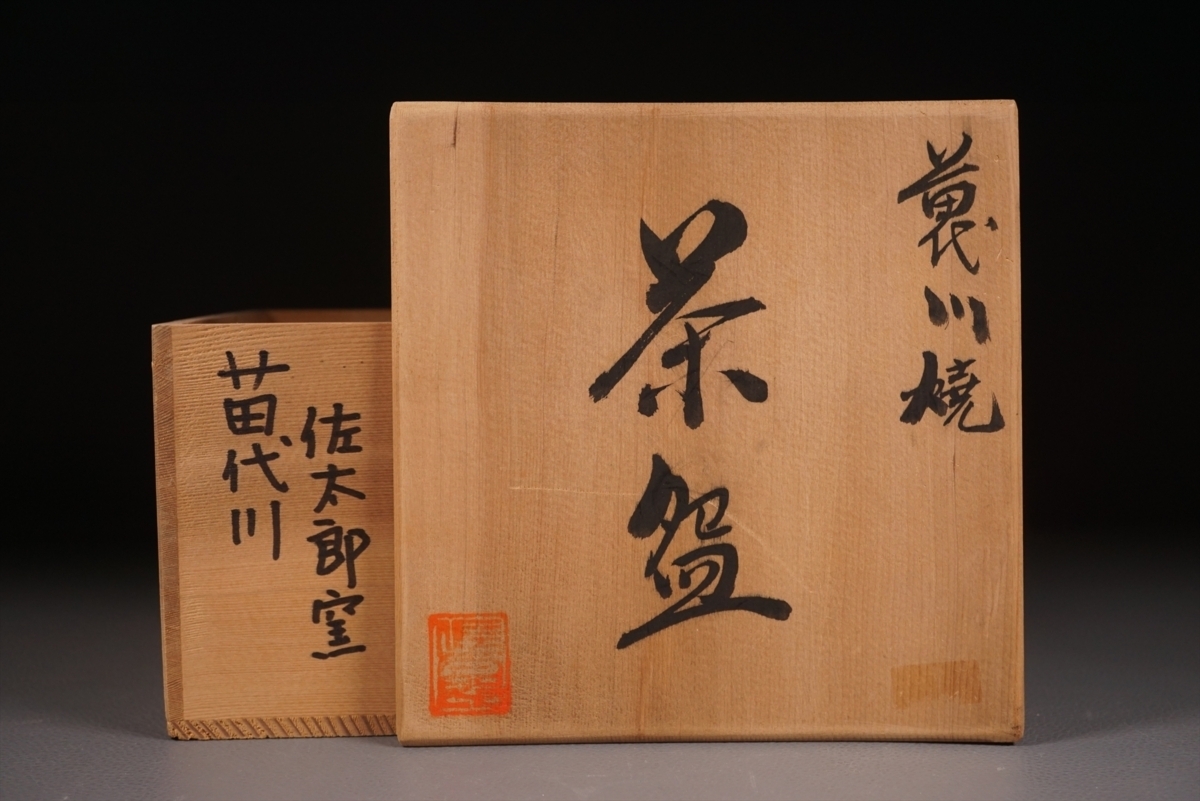 苗代川燒
茶盌
佐太郎窯
苗代川